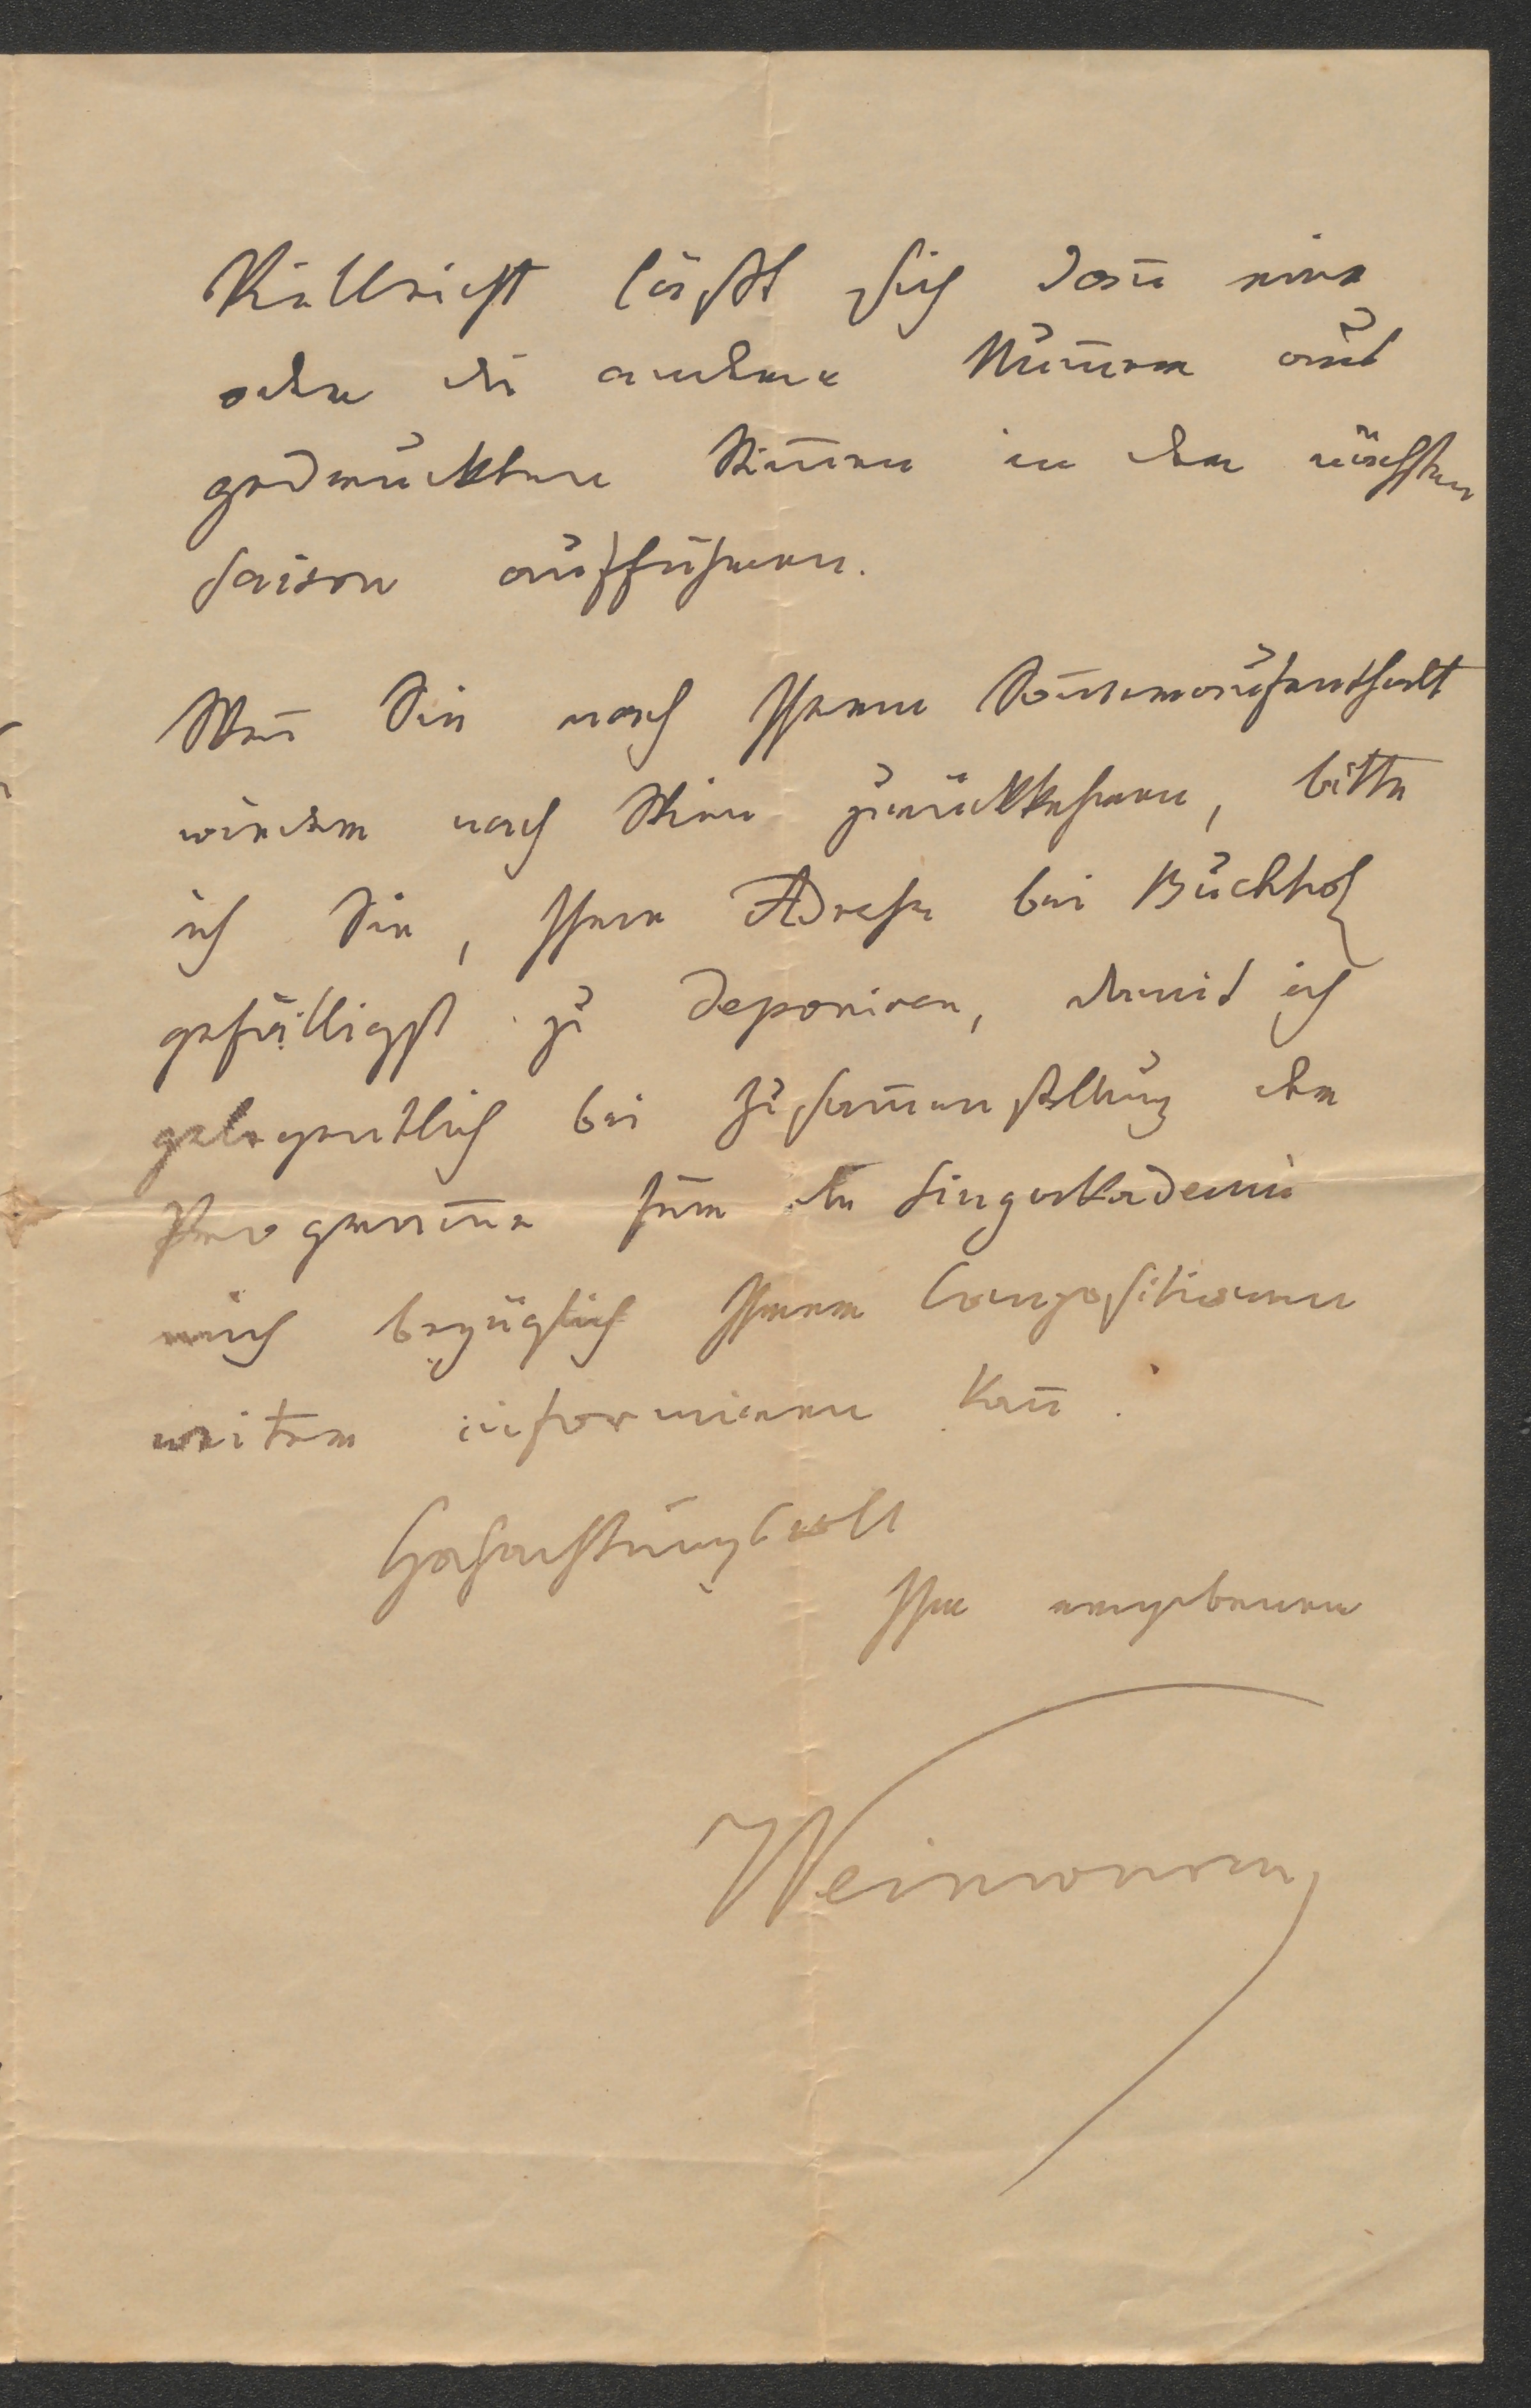 Vielleicht läßt sich dañ eine
oder die andere Num̅er aus
gedruckten Stim̅en in der nächsten
Saison aufführen.
Weñ Sie nach Ihrem Som̅eraufenthalt
wieder nach Wien zurückkehren, bitte
ich Sie, Ihre Adresse bei Buchholz
gefälligst zu deponiren, damit ich
gelegentlich bei Zusam̅enstellung der
Program̅e für die Singakademie
mich bezüglich Ihrer Compositionen
weiter informieren kañ.
Hochachtungsvoll
Ihr ergebener
Weinwurm